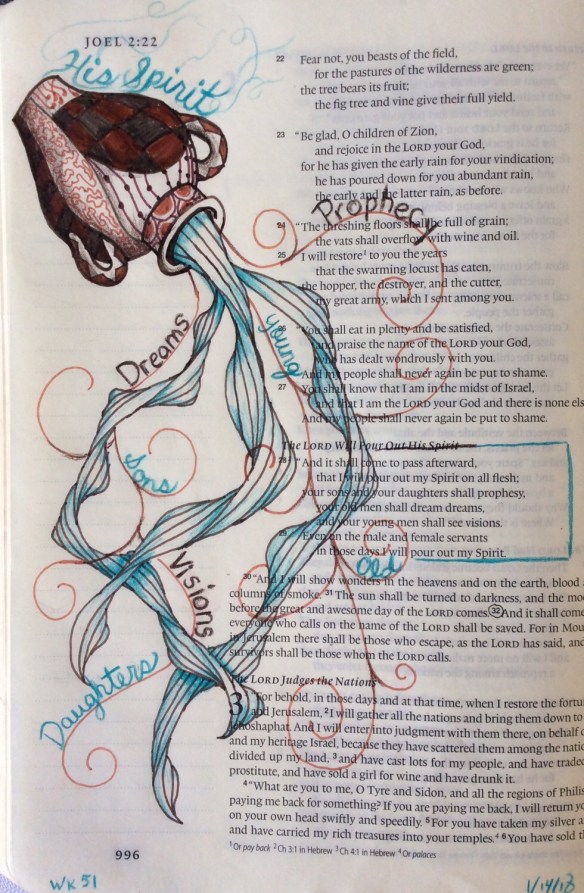 JOEL 2:22
His Spirit
22 Fear not, you beasts of the field,
for the pastures of the wilderness are green;
the tree bears its fruit;
the fig tree and vine give their full yield.
23 "Be glad, O children of Zion,
and rejoice in the LORD your God,
for he has given the early rain for your vindication;
he has poured down for you abundant rain,
the early and the latter rain, as before.
Prophecy
24 "The threshing floors shall be full of grain;
the vats shall overflow with wine and oil.
25 I will restore1 to you the years
that the swarming locust has eaten,
the hopper, the destroyer, and the cutter,
my great army, which I sent among you.
Dreams
Young
26 "You shall eat in plenty and be satisfied,
and praise the name of the LORD your God,
who has dealt wondrously with you.
And my people shall never again be put to shame.
27 You shall know that I am in the midst of Israel,
and that I am the LORD your God and there is none els
And my people shall never again be put to shame.
The LORD Will Pour Out His Spirit
Sons
28 "And it shall come to pass afterward,
that I will pour out my Spirit on all flesh;
your sons and your daughters shall prophesy,
your old men shall dream dreams,
and your young men shall see visions.
29 Even on the male and female servants
in those days I will pour out my Spirit.
Old
Visions
30 "And I will show wonders in the heavens and on the earth, blood
columns of smoke. 31 The sun shall be turned to darkness, and the mo
before the great and awesome day of the LORD comes. 32 And it shall come
everyone who calls on the name of the LORD shall be saved. For in Mou
in Jerusalem there shall be those who escape, as the LORD has said, and
survivors shall be those whom the LORD calls.
Daughters
The LORD Judges the Nations
3 "For behold, in those days and at that time, when I restore the fortu
and Jerusalem, 2 I will gather all the nations and bring them down to
Jehoshaphat. And I will enter into judgment with them there, on behalf o
and my heritage Israel, because they have scattered them among the natio
divided up my land, 3 and have cast lots for my people, and have traded
prostitute, and have sold a girl for wine and have drunk it.
4 "What are you to me, O Tyre and Sidon, and all the regions of Philis
paying me back for something? If you are paying me back, I will return yo
on your own head swiftly and speedily. 5 For you have taken my silver a
and have carried my rich treasures into your temples.4 6 You have sold t
1 Or pay back 2 Ch 3:1 in Hebrew 3 Ch 4:1 in Hebrew 4 Or palaces
996
WK 51